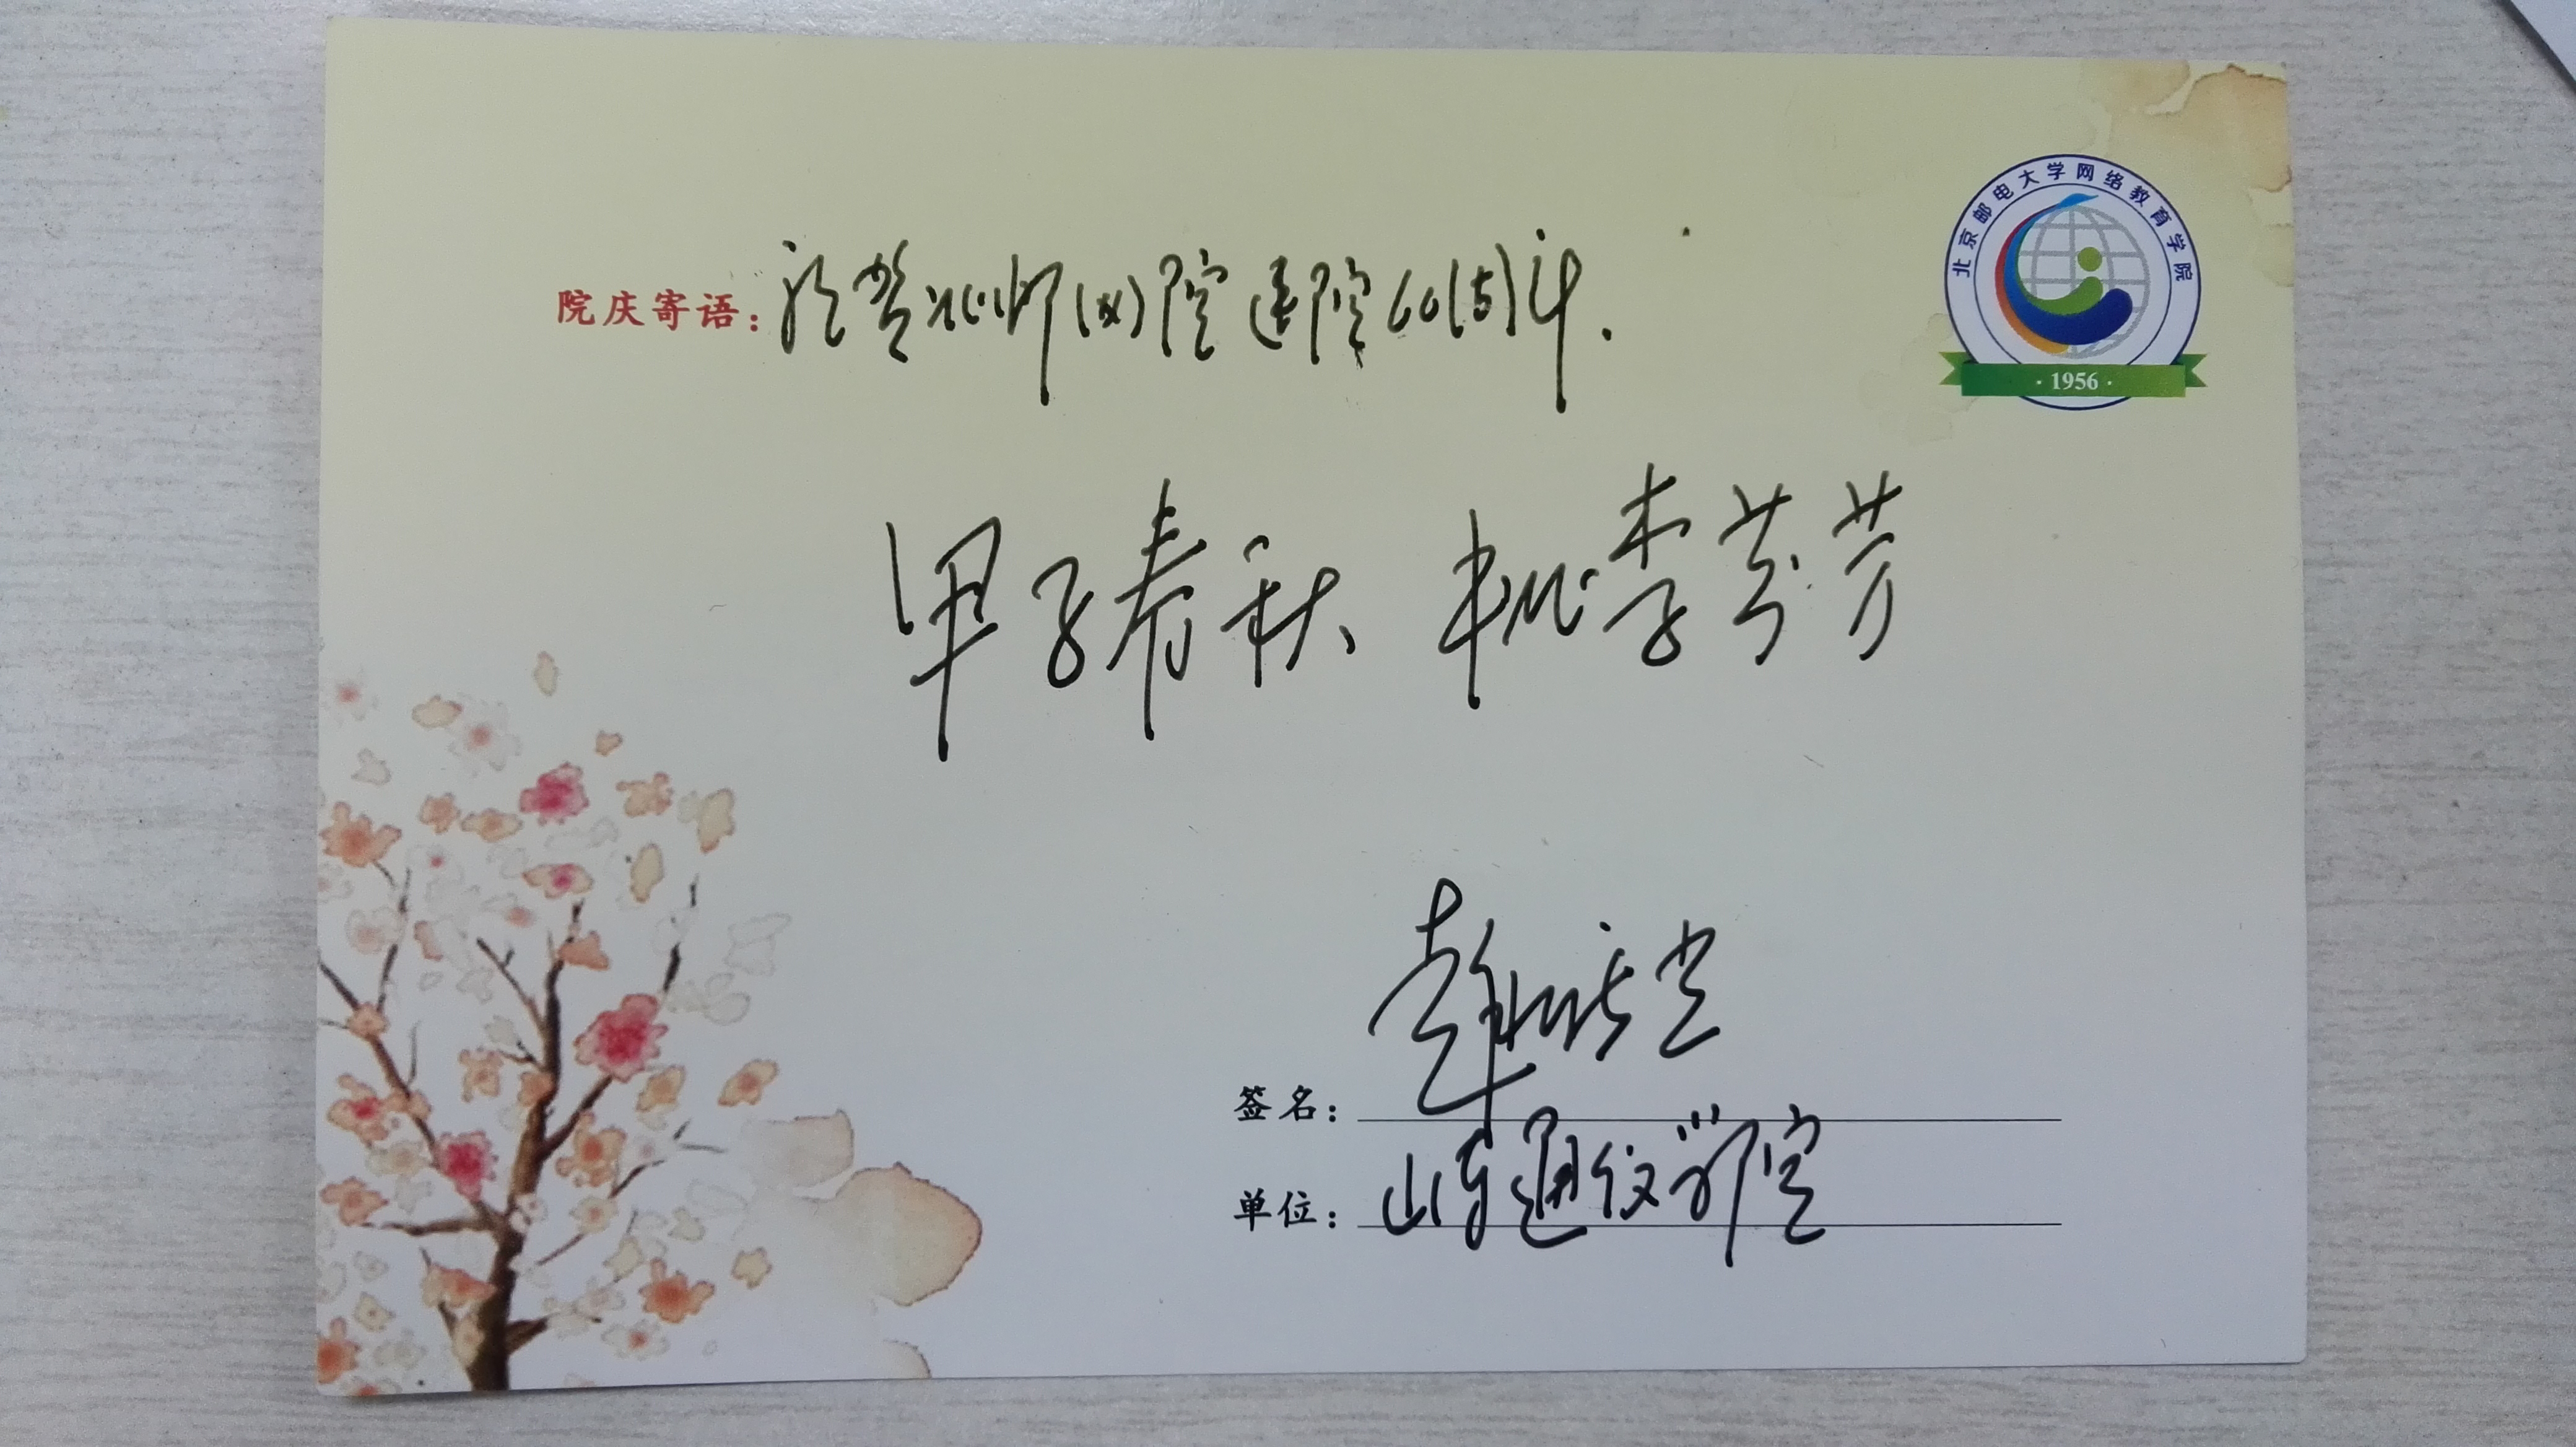 北京邮电大学网络教育学院
· 1956 ·
院庆寄语：祝贺北邮网院建院60周年.
甲子春秋、桃李芬芳
签名：彭
单位：山东通信学院